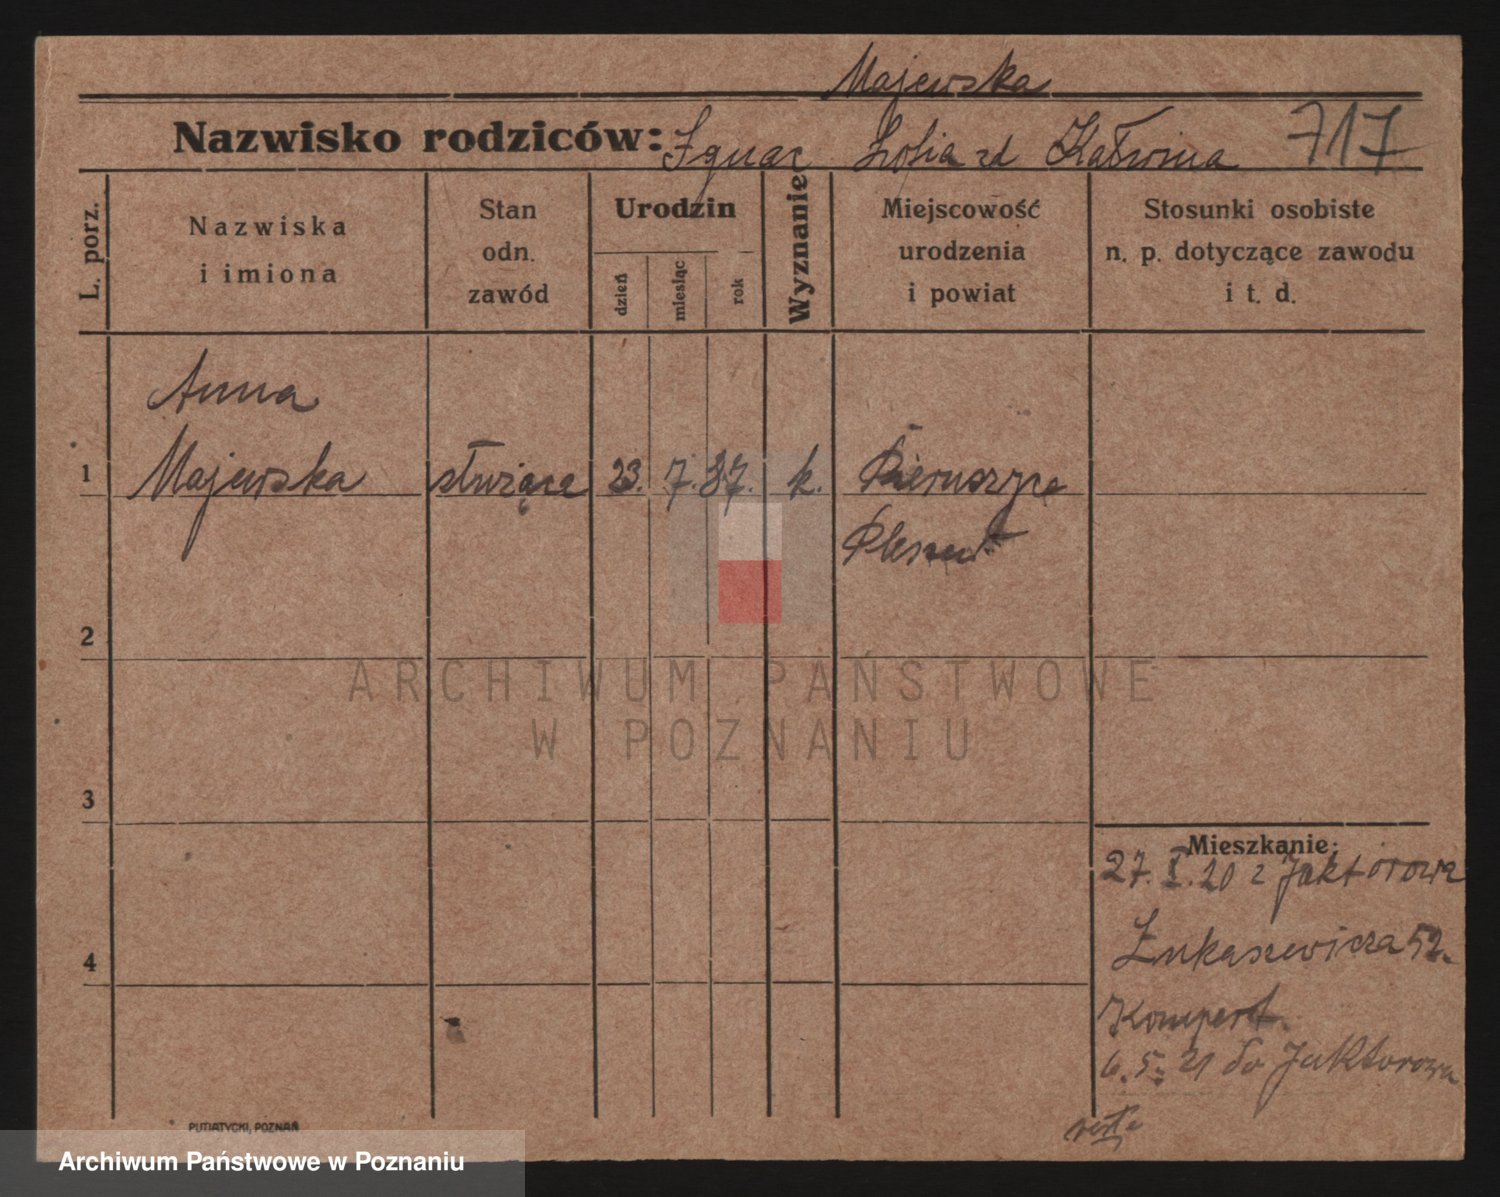 Majewska
Nazwisko rodziców: Ignac Zofia zd Kaźmina 717
L. porz.
Nazwiska
i imiona
Stan
odn.
zawód
Urodzin
dzień
miesiąc
rok
Wyznanie
Miejscowość
urodzenia
i powiat
Stosunki osobiste
n. p. dotyczące zawodu
i t. d.
Anna
1 Majewska służąca 23. 7. 87. k. Pieruszyce
Pleszew
2
3
4
Mieszkanie:
27. X. 20 z Jaktorowa
Łukaszewicza 52.
Kompert.
6. 5. 21 do Jaktorowa
PUTIATYCKI, POZNAŃ
ARCHIWUM PAŃSTWOWE
W POZNANIU
Archiwum Państwowe w Poznaniu